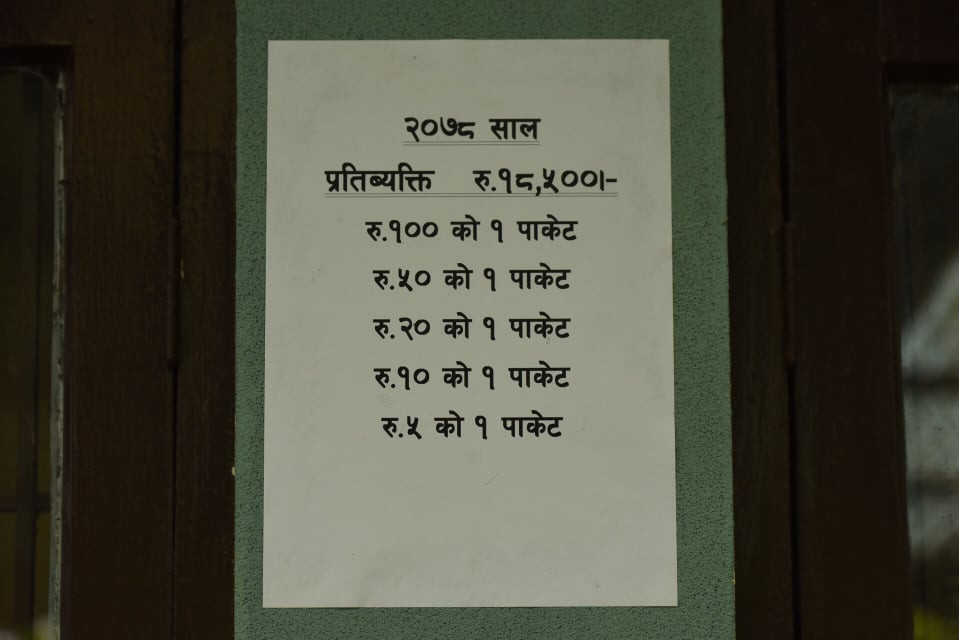 २०७८ साल
प्रतिब्यक्ति रु.१८,५००।-
रु.१०० को १ पाकेट
रु.५० को १ पाकेट
रु.२० को १ पाकेट
रु.१० को १ पाकेट
रु.५ को १ पाकेट